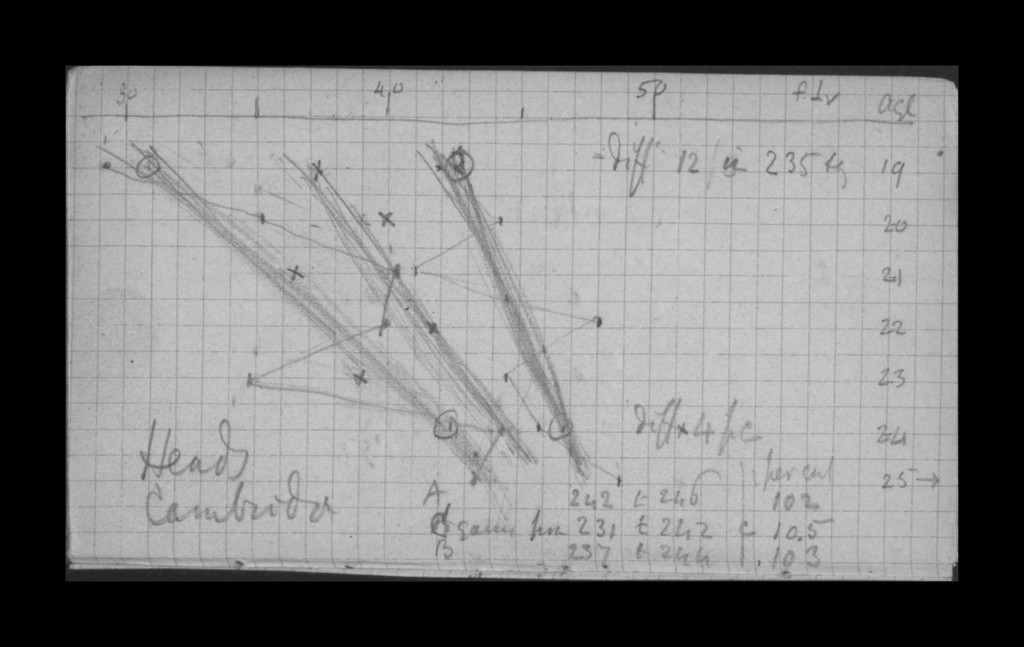 30 40 50 age
diff 12 in 235 19
20
21
22
23
diff 4 pc 24
25 →
Heads
Cambridge
per cent
A 242 t 246 102
C gains from 231 t 242 c 10.5
B 237 t 244 103